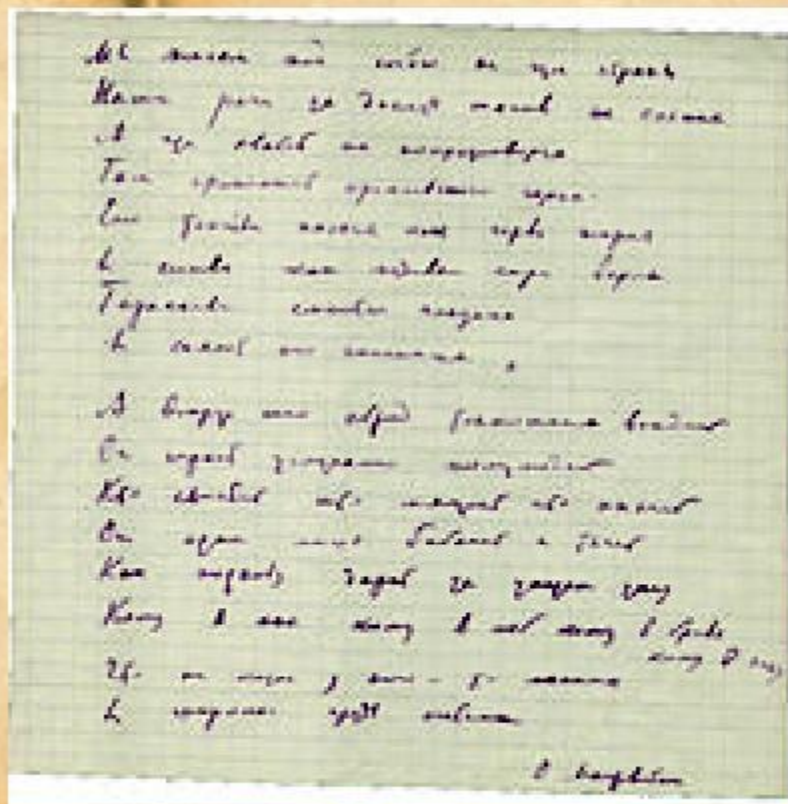 Мы живем под собою не чуя страны
Наши речи за десять шагов не слышны
А где хватит на полразговорца
Там припомнят кремлевского горца.
Его толстые пальцы как черви жирны
А слова как пудовые гири верны
Тараканьи смеются глазища
И сияют его голенища.
А вокруг его сброд тонкошеих вождей
Он играет услугами полулюдей
Кто свистит кто мяучит кто хнычет
Он один лишь бабачит и тычет
Как подкову дарит за указом указ
Кому в пах кому в лоб кому в бровь
кому в глаз
Что ни казнь у него - то малина
И широкая грудь осетина